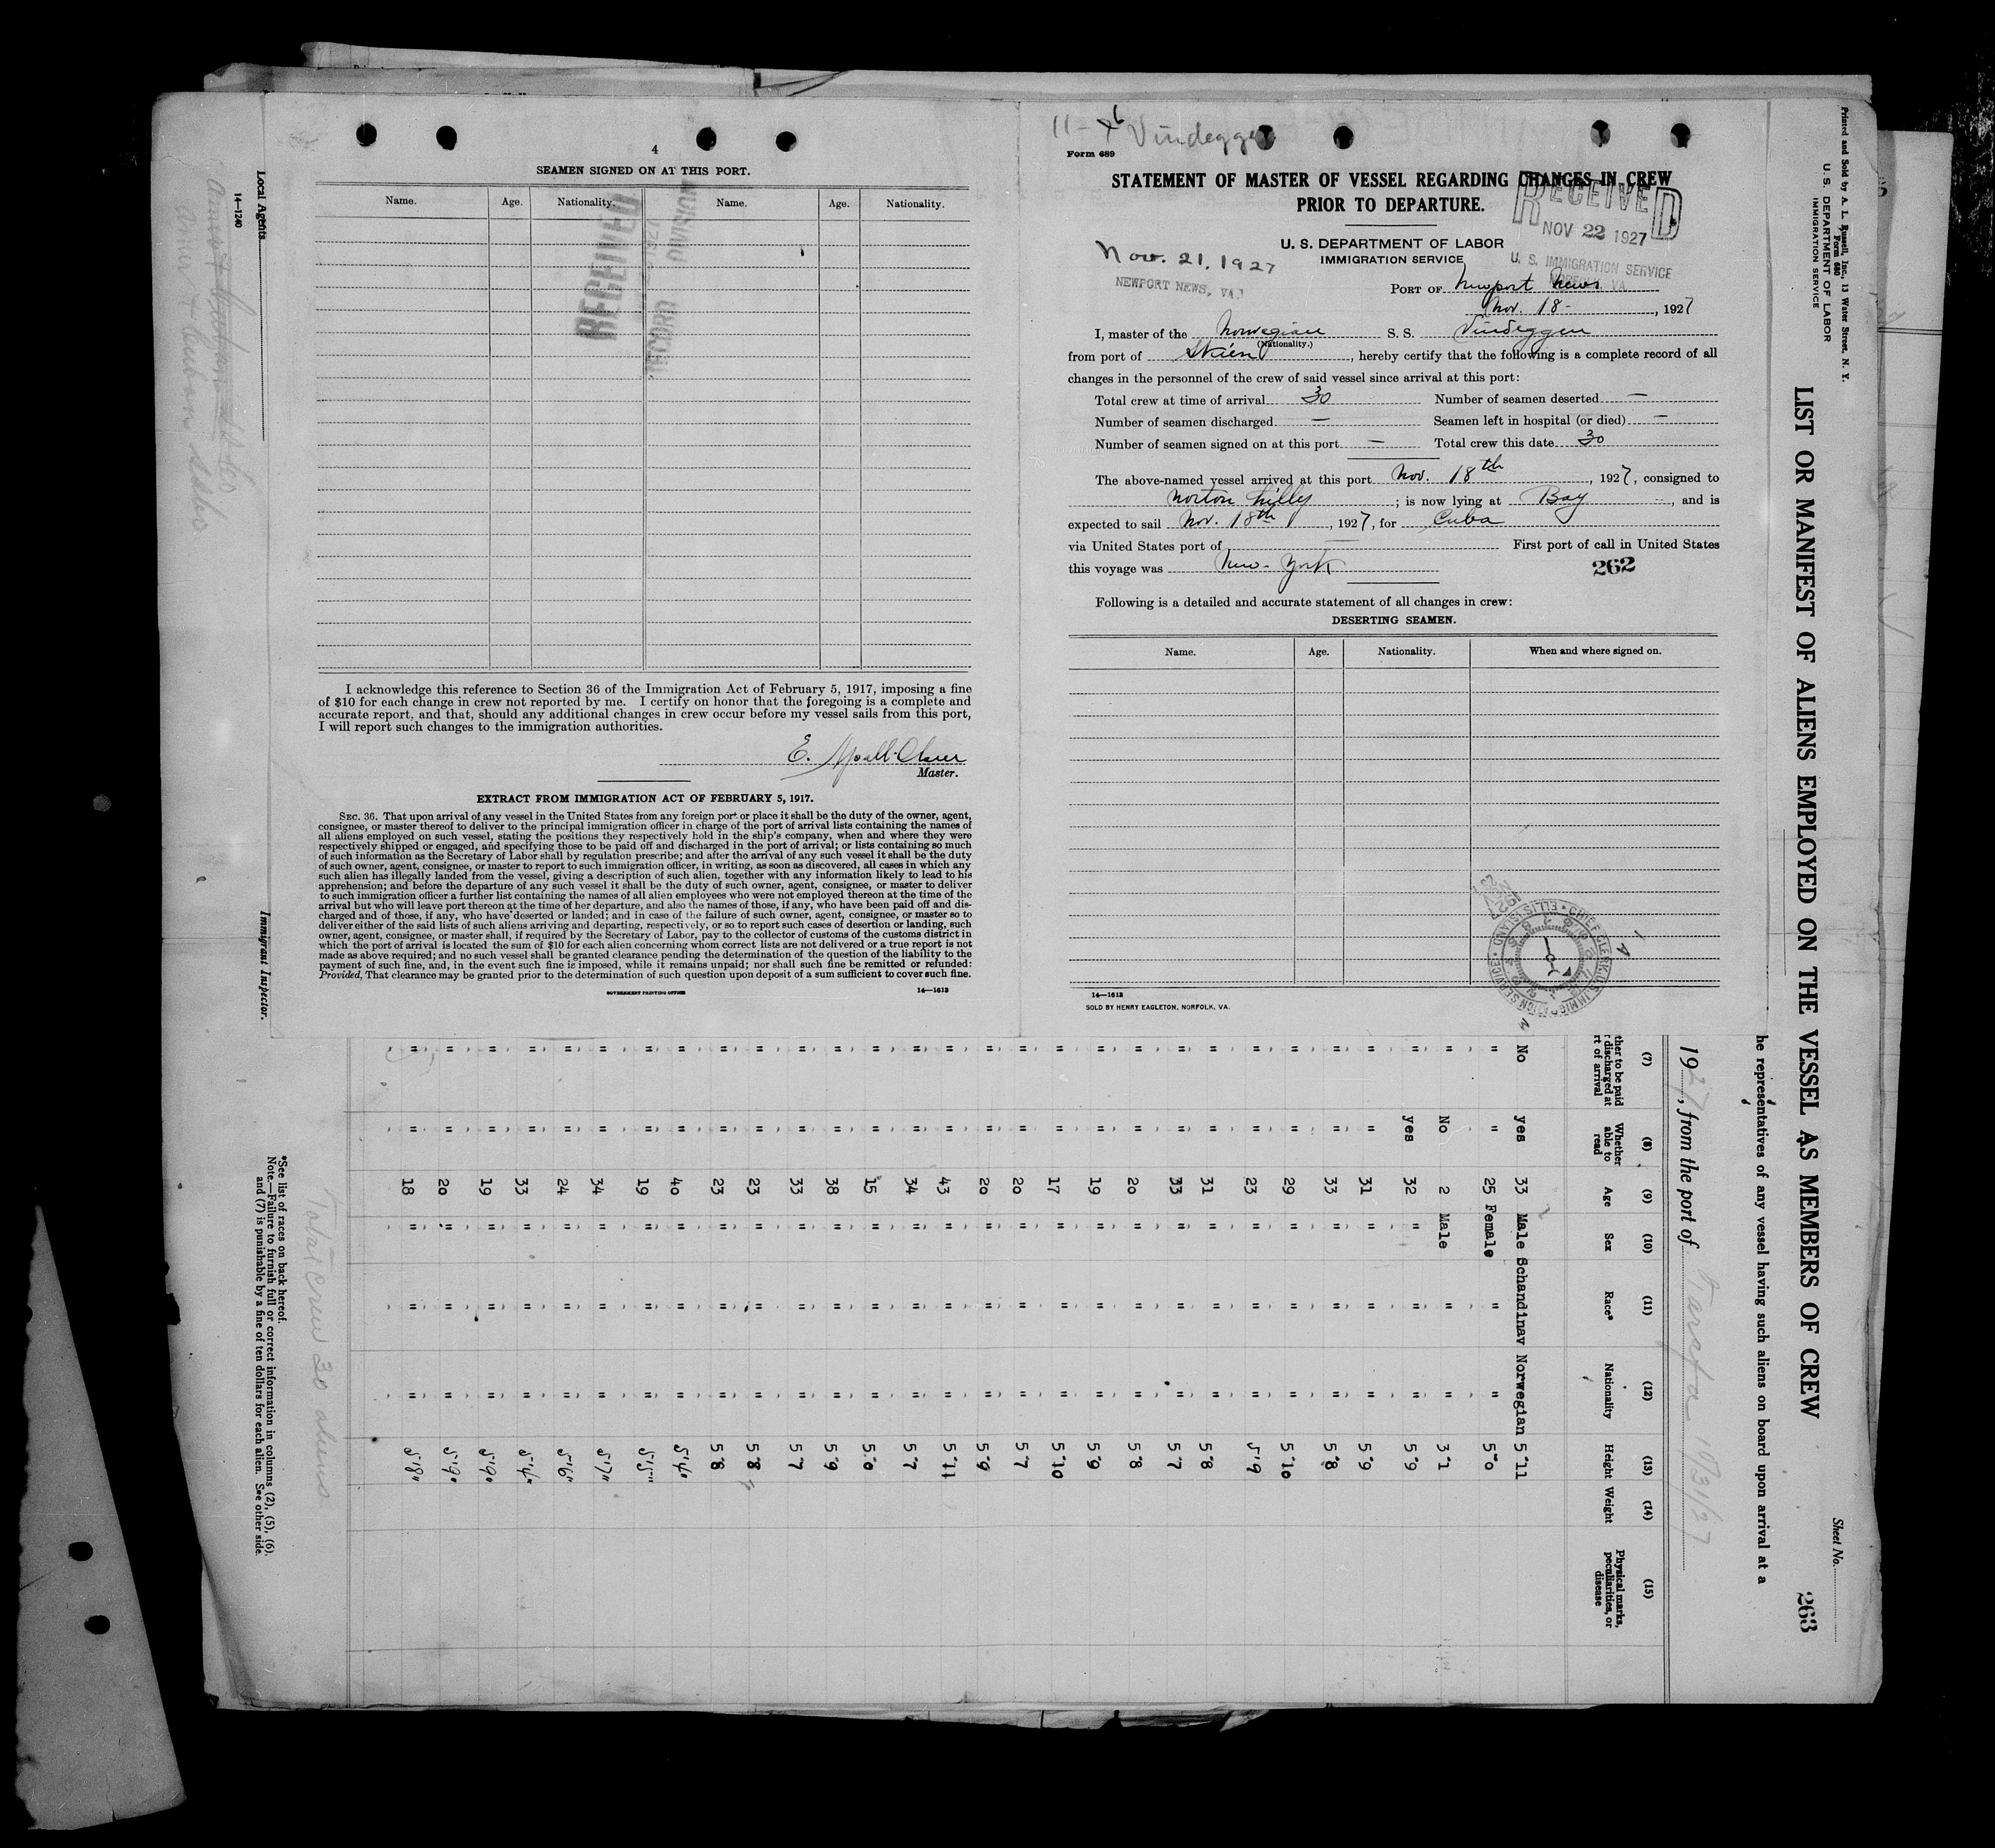 4
SEAMEN SIGNED ON AT THIS PORT.
Name. Age. Nationality. Name. Age. Nationality.
RECEIVED
RECORD DIVISION
I acknowledge this reference to Section 36 of the Immigration Act of February 5, 1917, imposing a fine
of $10 for each change in crew not reported by me. I certify on honor that the foregoing is a complete and
accurate report, and that, should any additional changes in crew occur before my vessel sails from this port,
I will report such changes to the immigration authorities.
E.
Master.
EXTRACT FROM IMMIGRATION ACT OF FEBRUARY 5, 1917.
SEC. 36. That upon arrival of any vessel in the United States from any foreign port or place it shall be the duty of the owner, agent,
consignee, or master thereof to deliver to the principal immigration officer in charge of the port of arrival lists containing the names of
all aliens employed on such vessel, stating the positions they respectively hold in the ship's company, when and where they were
respectively shipped or engaged, and specifying those to be paid off and discharged in the port of arrival; or lists containing so much
of such information as the Secretary of Labor shall by regulation prescribe; and after the arrival of any such vessel it shall be the duty
of such owner, agent, consignee, or master to report to such immigration officer, in writing, as soon as discovered, all cases in which any
such alien has illegally landed from the vessel, giving a description of such alien, together with any information likely to lead to his
apprehension; and before the departure of any such vessel it shall be the duty of such owner, agent, consignee, or master to deliver
to such immigration officer a further list containing the names of all alien employees who were not employed thereon at the time of the
arrival but who will leave port thereon at the time of her departure, and also the names of those, if any, who have been paid off and dis-
charged and of those, if any, who have deserted or landed; and in case of the failure of such owner, agent, consignee, or master so to
deliver either of the said lists of such aliens arriving and departing, respectively, or so to report such cases of desertion or landing, such
owner, agent, consignee, or master shall, if required by the Secretary of Labor, pay to the collector of customs of the customs district in
which the port of arrival is located the sum of $10 for each alien concerning whom correct lists are not delivered or a true report is not
made as above required; and no such vessel shall be granted clearance pending the determination of the question of the liability to the
payment of such fine, and, in the event such fine is imposed, while it remains unpaid; nor shall such fine be remitted or refunded:
Provided, That clearance may be granted prior to the determination of such question upon deposit of a sum sufficient to cover such fine.
GOVERNMENT PRINTING OFFICE 14—1613
Vindeggen
Form 689
STATEMENT OF MASTER OF VESSEL REGARDING CHANGES IN CREW
PRIOR TO DEPARTURE.
RECEIVED
NOV 22 1927
U. S. IMMIGRATION SERVICE
NORFOLK, VA.
U. S. DEPARTMENT OF LABOR
IMMIGRATION SERVICE
Nov. 21, 1927
NEWPORT NEWS, VA.
PORT OF Newport News
Nov. 18-, 1927
I, master of the Norwegian S. S. Vindeggen
(Nationality.)
from port of Skien, hereby certify that the following is a complete record of all
changes in the personnel of the crew of said vessel since arrival at this port:
Total crew at time of arrival 30 Number of seamen deserted —
Number of seamen discharged — Seamen left in hospital (or died) —
Number of seamen signed on at this port — Total crew this date 30
The above-named vessel arrived at this port Nov. 18th, 1927, consigned to
Norton Lilly; is now lying at Bay, and is
expected to sail Nov. 18th, 1927, for Cuba
via United States port of — First port of call in United States
this voyage was New-York
262
Following is a detailed and accurate statement of all changes in crew:
DESERTING SEAMEN.
Name. Age. Nationality. When and where signed on.
CHIEF CLERK U.S. IMMIGRATION SERVICE • ELLIS ISLAND
14—1613
SOLD BY HENRY EAGLETON, NORFOLK, VA.
Printed and Sold by A. L. Russell, Inc., 13 Water Street, N. Y.
Form 680
U. S. DEPARTMENT OF LABOR
IMMIGRATION SERVICE
Sheet No.
LIST OR MANIFEST OF ALIENS EMPLOYED ON THE VESSEL AS MEMBERS OF CREW
263
he representatives of any vessel having such aliens on board upon arrival at a
1927, from the port of Tarafa 10/31/27
(7) (8) (9) (10) (11) (12) (13) (14) (15)
ther to be paid r discharged at rt of arrival
Whether able to read
Age
Sex
Race*
Nationality
Height
Weight
Physical marks, peculiarities, or disease
No yes 33 Male Schandinav Norwegian 5"11
" " 25 Female " " 5"0
" No 2 Male " " 3"1
" yes 32 " " " 5"9
" " 31 " " " 5"9
" " 33 " " " 5"8
" " 29 " " " 5"10
" " 23 " " " 5'9
" " 31 " " " 5"8
" " 33 " " " 5"7
" " 20 " " " 5"8
" " 19 " " " 5"9
" " 17 " " " 5"10
" " 20 " " " 5"7
" " 20 " " " 5"9
" " 43 " " " 5"11
" " 34 " " " 5"7
" " 15 " " " 5"0
" " 38 " " " 5"9
" " 33 " " " 5"7
" " 23 " " " 5"8
" " 23 " " " 5"8
" " 40 " " " 5'4"
" " 19 " " " 5'5"
" " 34 " " " 5'7"
" " 24 " " " 5'6"
" " 33 " " " 5'4"
" " 19 " " " 5'9"
" " 20 " " " 5'9"
" " 18 " " " 5'8"
Total Crew 30 aliens
*See list of races on back hereof.
Note.—Failure to furnish full or correct information in columns (2), (5), (6),
and (7) is punishable by a fine of ten dollars for each alien. See other side.
Immigrant Inspector.
Local Agents
14—1240